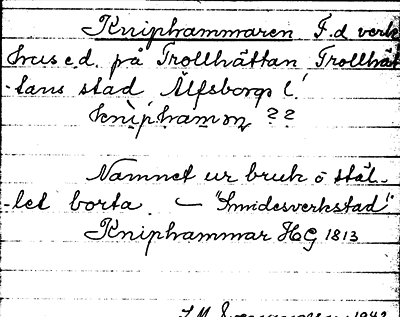 Kniphammaren F.d verk
hus e.d. på Trollhättan Trollhät
-tans stad Älfsborgs l.
knìphamạṛ ??
Namnet ur bruk o stäl-
-let borta. — "Smidesverkstad"
Kniphammar HG 1813
1942